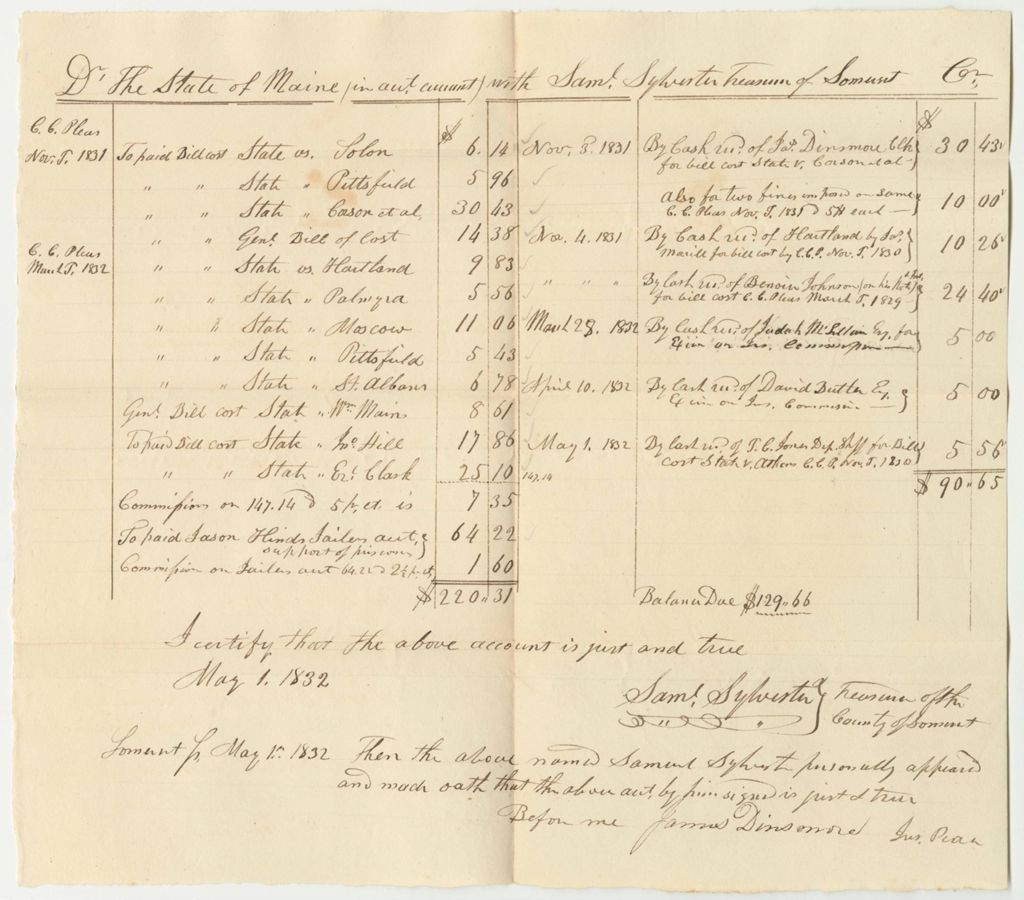 Dr. The State of Maine (in acct. current) with Saml. Sylvester Treasurer of Somerset Cr.
C. C. Pleas
Nov. T. 1831 To paid Bill cost State vs. Solon $ 6. 14
" " State " Pittsfield 5 96
" " State " Corson et al. 30 43
" " Genl. Bill of Cost 14 38
C. C. Pleas
March T. 1832 " " State vs. Hartland 9 83
" " State " Palmyra 5 56
" " State " Moscow 11 06
" " State " Pittsfield 5 43
" " State " St. Albans 6 78
Genl. Bill cost State " Wm. Mains 8 61
To paid Bill cost State " Jno. Hill 17 86
" " State " Ezl. Clark 25 10 147.14
Commission on 147.14 @ 5 pr. ct. is 7 35
To paid Jason Hinds Jailers acct. 64 22
support of prisoners
Commission on Jailers acct 64.22 @ 2½ pr. ct. 1 60
$ 220 " 31
Nov. 3. 1831 By Cash recd. of Jas. Dinsmore Clk $ 30 43
for bill cost State v. Corson et al
Also for two fines imposed on same
C. C. Pleas Nov. T. 1831 @ 5$ each 10 00
Nov. 4. 1831 By Cash recd. of Hartland by Jas.
Merrill for bill cost by C. C. P. Nov. T. 1830 10 26
" " " By Cash recd. of Benoin Johnson (on his Note
for bill cost C. C. Pleas March T. 1829 24 40
March 28, 1832 By Cash recd. of Judah McLellan Esq. for
on Jus. Commission 5 00
April 10. 1832 By Cash recd. of David Butler Esq.
on Jus. Commission 5 00
May 1. 1832 By Cash recd. of T. C. Jones Dep. Shff for Bill
cost State v. Athens C. C. P. Nov. T. 1830 5 56
$ 90 " 65
Balance Due $129 " 66
I certify that the above account is just and true
May 1. 1832
Saml. Sylvester Treasurer of the
County of Somerset
Somerset ss. May 1st 1832 Then the above named Samuel Sylvester personally appeared
and made oath that the above acct. by him signed is just & true
Before me James Dinsmore Jus. Peace